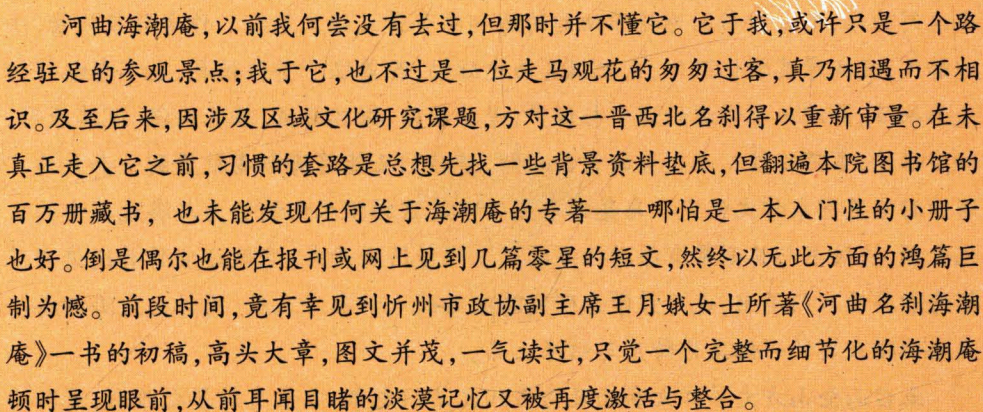 河曲海潮庵,以前我何尝没有去过,但那时并不懂它。它于我,或许只是一个路
经驻足的参观景点;我于它,也不过是一位走马观花的匆匆过客,真乃相遇而不相
识。及至后来,因涉及区域文化研究课题,方对这一晋西北名刹得以重新审量。在未
真正走入它之前,习惯的套路是总想先找一些背景资料垫底,但翻遍本院图书馆的
百万册藏书，也未能发现任何关于海潮庵的专著——哪怕是一本入门性的小册子
也好。倒是偶尔也能在报刊或网上见到几篇零星的短文,然终以无此方面的鸿篇巨
制为憾。前段时间,竟有幸见到忻州市政协副主席王月娥女士所著《河曲名刹海潮
庵》一书的初稿,高头大章,图文并茂,一气读过,只觉一个完整而细节化的海潮庵
顿时呈现眼前,从前耳闻目睹的淡漠记忆又被再度激活与整合。